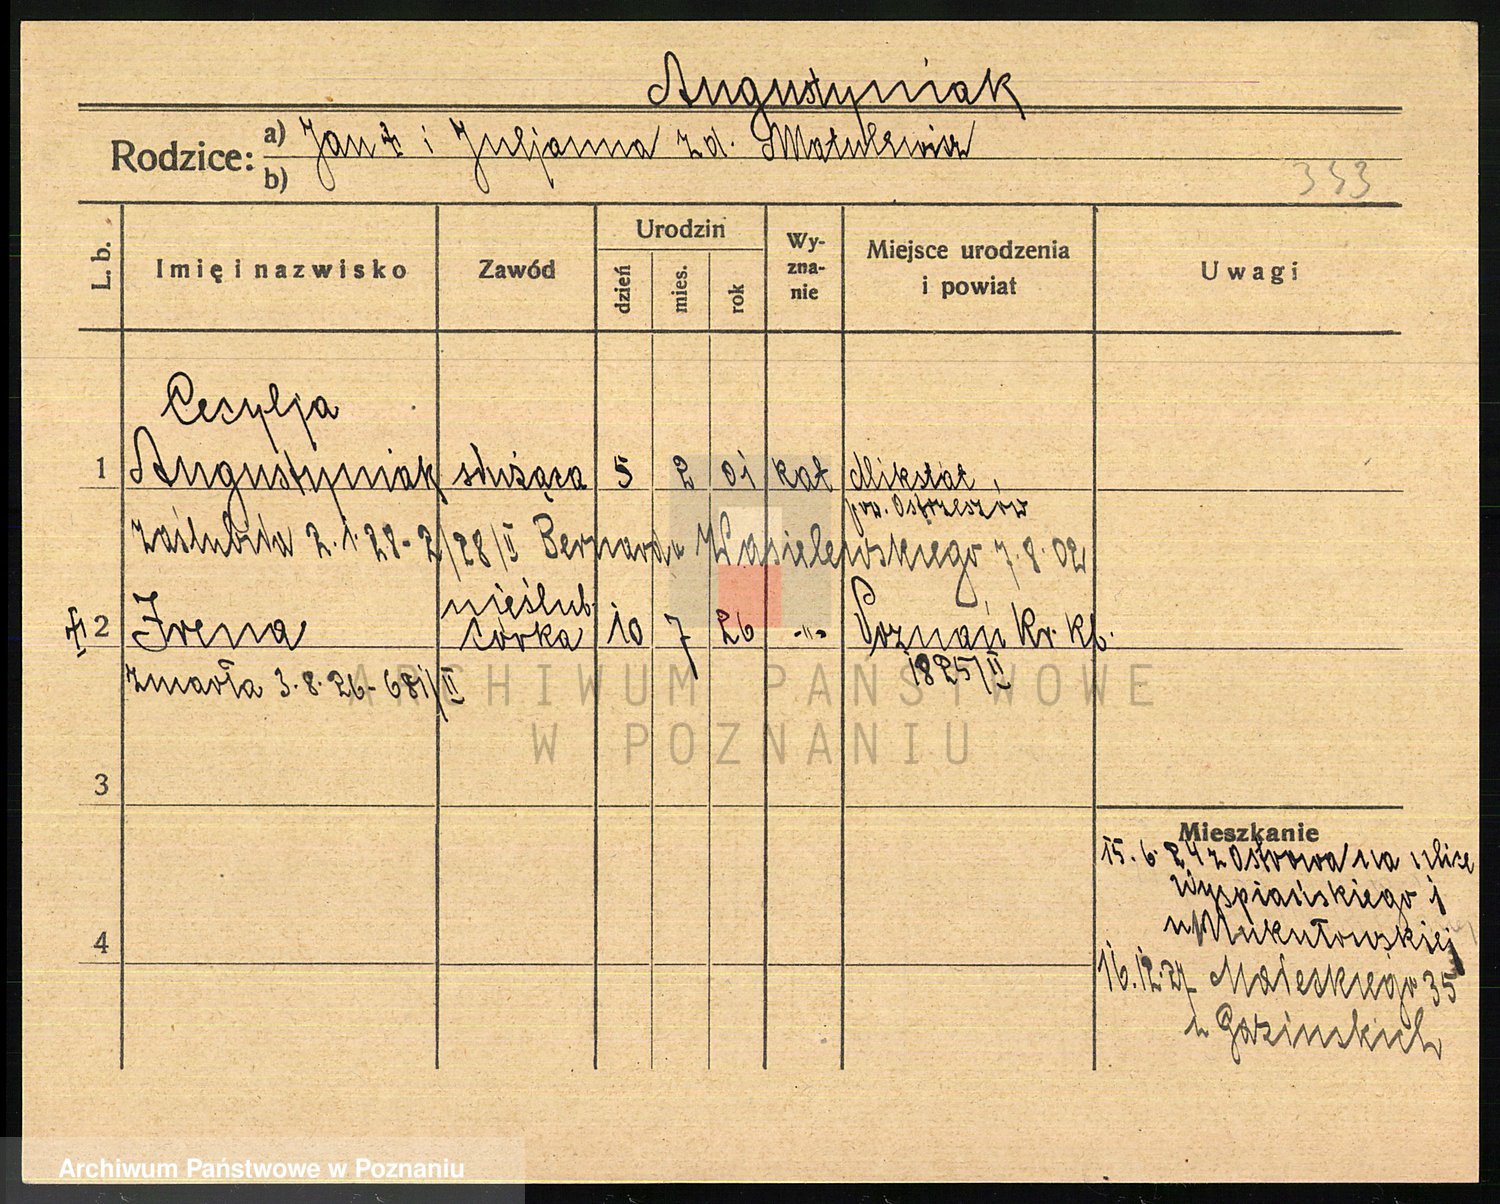 Augustyniak
Rodzice: a) Jan ‡ i Juljanna z d. Matulewicz
b)
353
L. b. Imię i nazwisko Zawód Urodzin dzień mies. rok Wy-zna-nie Miejsce urodzenia i powiat Uwagi
Cecylja
1 Augustyniak służąca 5 2 01 kat Mikstat,
pow. Ostrzeszów
zaślubiła 2.1.28 - 2/28/II Bernarda Wasielewskiego 7.8.02
nieślub.
‡ 2 Irena córka 10 7 26 -"- Poznań Kr. Kb.
zmarła 3.8.26 - 681/II 1825/II
ARCHIWUM PAŃSTWOWE
W POZNANIU
3
Mieszkanie
15.6.24 z Ostrowa na ulice
Wyspiańskiego 1
u Mukułowskiej
4
16.12.27 Małeckiego 35
u Gozinskich
Archiwum Państwowe w Poznaniu